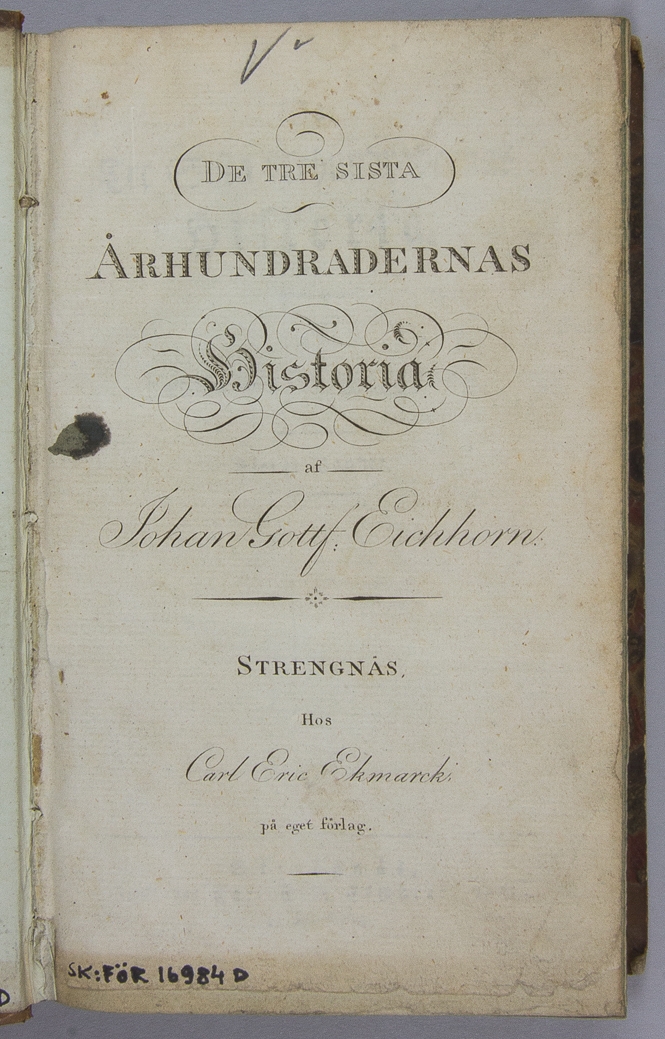 DE TRE SISTA
ÅRHUNDRADERNAS
Historia
af
Johan Gottf: Eichhorn.
STRENGNÄS,
Hos
Carl Eric Ekmarck.
på eget förlag.
SK:FÖR 16984 D